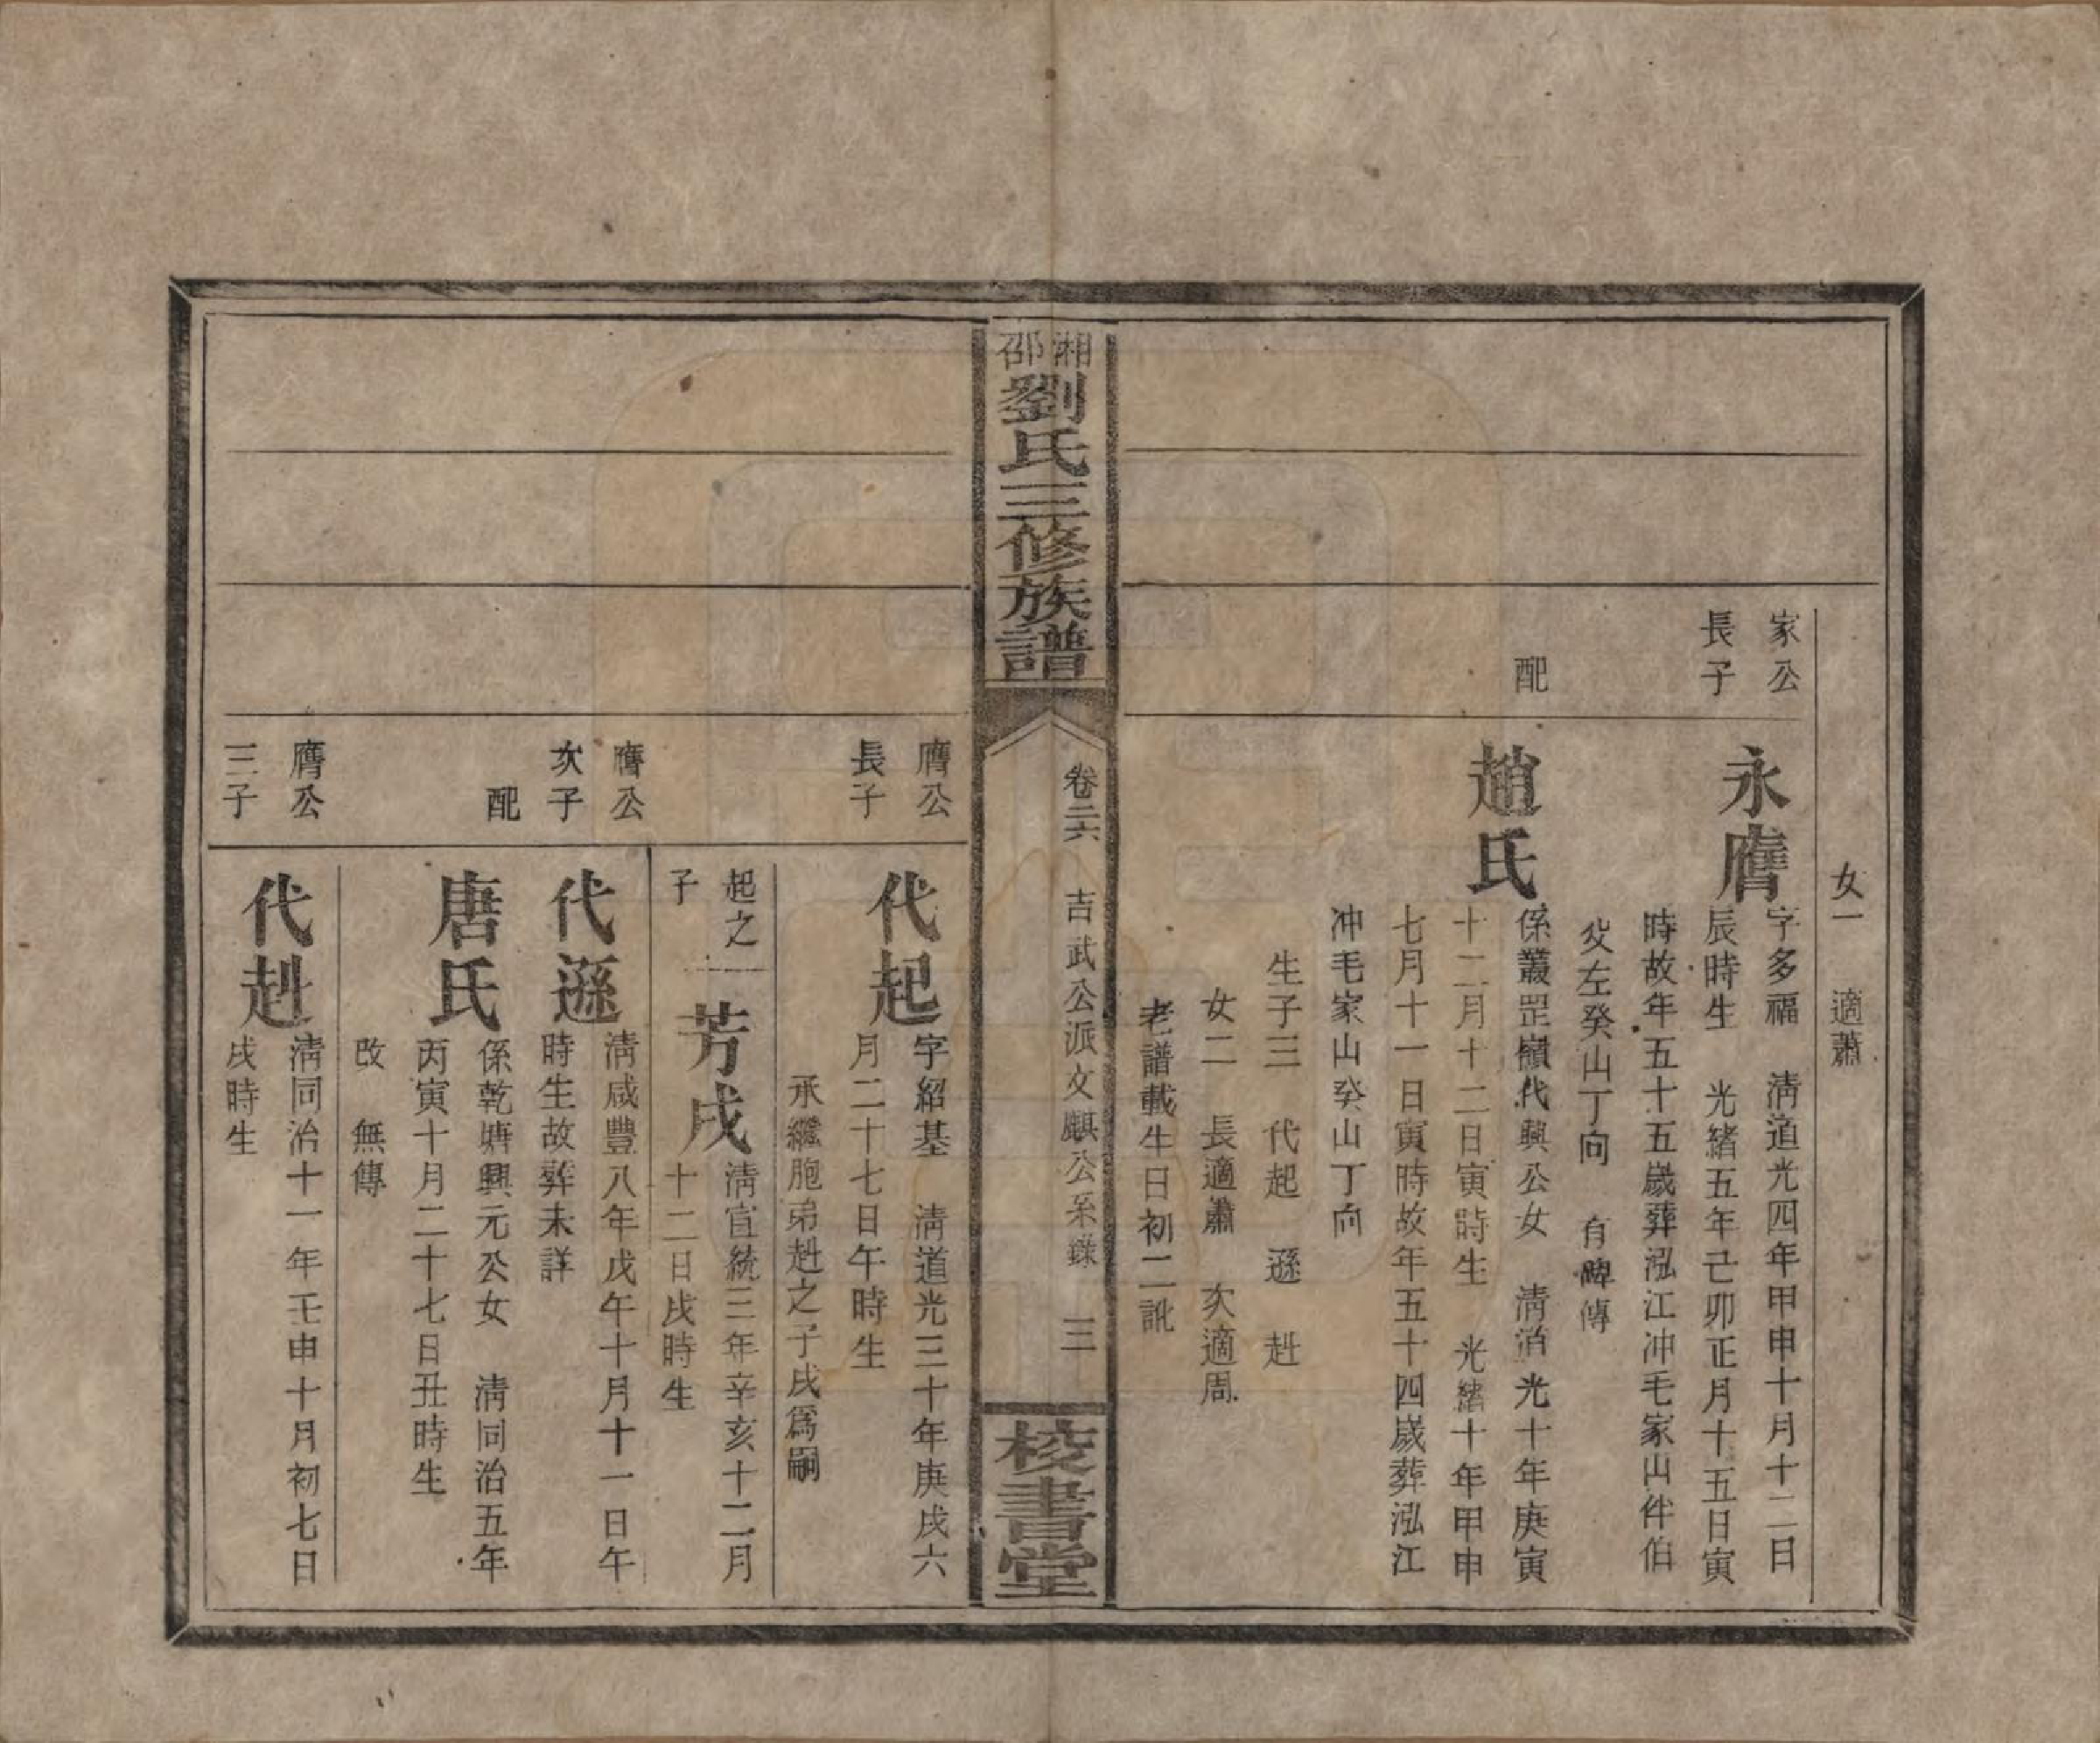 女一　適蕭
家公
長子
永膺
字多福　淸道光四年甲申十月十二日
辰時生　光緖五年己卯正月十五日寅
時故年五十五歲葬泓江冲毛家山伴伯
父左癸山丁向　有碑傳
配
趙氏
係叢罡嶺代興公女　淸道光十年庚寅
十二月十二日寅時生　光緖十年甲申
七月十一日寅時故年五十四歲葬泓江
冲毛家山癸山丁向
生子三　代起　遜　赳
女二　長適蕭　次適周
老譜載生日初二訛
湘邵劉氏三修族譜
卷二六　吉武公派文麒公系錄　三
梭書堂
膺公
長子
代起
字紹基　淸道光三十年庚戌六
月二十七日午時生
承繼胞弟赳之子戌爲嗣
起之
子
芳戌
淸宣統三年辛亥十二月
十二日戌時生
膺公
次子
代遜
淸咸豐八年戊午十月十一日午
時生故葬未詳
配
唐氏
係乾塘興元公女　淸同治五年
丙寅十月二十七日丑時生
改　無傳
膺公
三子
代赳
淸同治十一年壬申十月初七日
戌時生